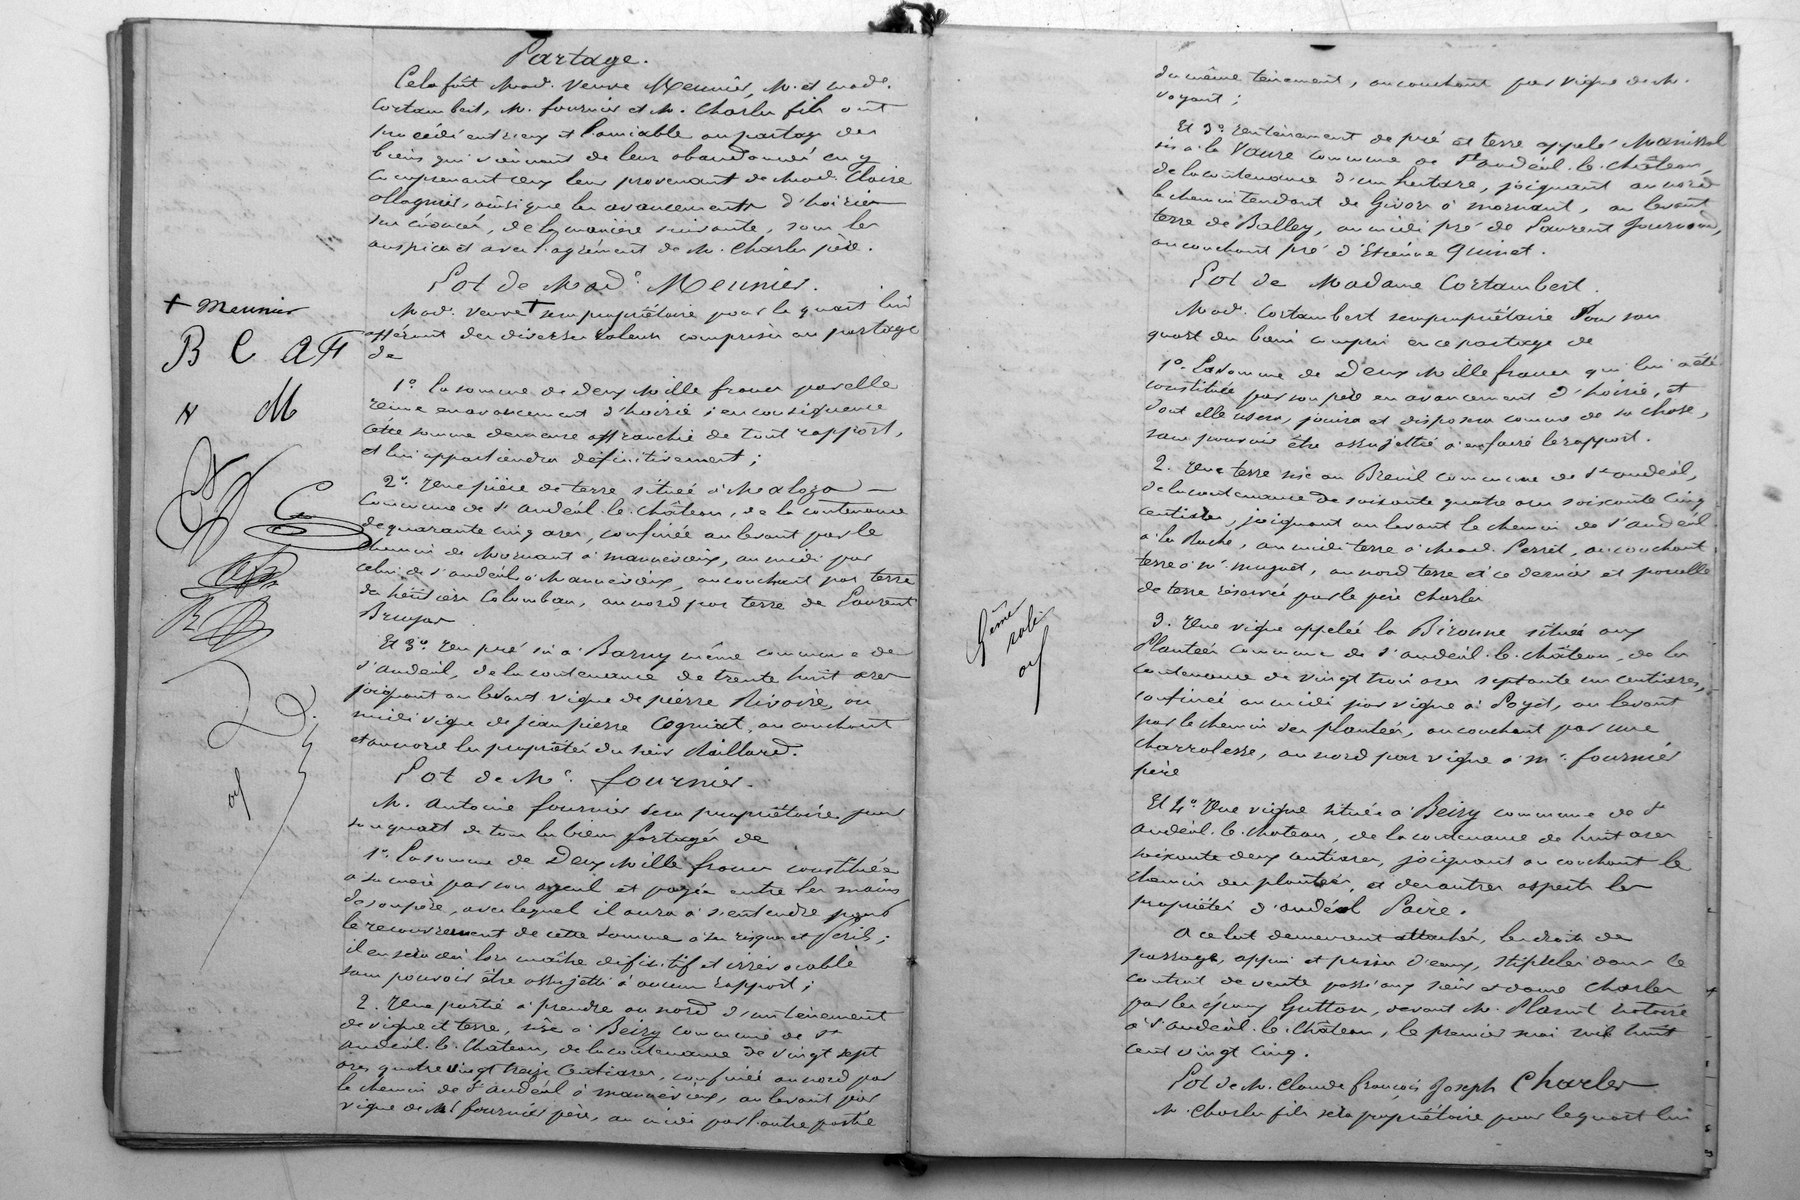 Partage.
Cela fait Mad. veuve Meunier, M. et mad.
Cortambert, M. fournier et M. Charles fils ont
procédé entr'eux et l'amiable au partage des
biens qui viennent de leur abandonnés en y
comprenant ceux leur provenant de Mad. Claire
ollagnier, ainsi que les avancements d'hoirie
sus énoncés, de la manière suivante, sous les
auspices et avec l'agrément de M. Charles père.
Lot de Mad.e Meunier.
Mad. veuve + sera propriétaire pour le quart lui
afférant des diverses valeurs comprises au partage
de
1.o la somme de deux mille francs par elle
reçue en avancement d'hoirie ; en conséquence
cette somme demeure affranchie de tout rapport,
et lui appartiendra définitivement ;
2.o Une pièce de terre située à
Commune de St andéol-le-château, de la contenance
de quarante cinq ares, confinée au levant par le
chemin de Mornant à mannevieux, au midi par
celui de St andéol à Mannevieux, au couchant par terre
de Colomban, au nord par terre de Laurent
Brugas.
Et 3.o Un pré sis à Barny même commune de
St andéol, de la contenance de trente huit ares
joignant au levant vigne de pierre Rivoire, au
midi vigne de jean pierre Cognat, au couchant
et au nord les propriétés du sieur Raillard.
Lot de M.r fournier.
M. Antoine fournier sera propriétaire pour
son quart de tous les biens partagés de
1.o La somme de Deux Mille francs constituée
à sa mère par son ayeul et payée entre les mains
de son père, avec lequel il aura à s'entendre pour
le recouvrement de cette somme à ses risques et périls ;
il en sera dès lors maître définitif et irrévocable
sans pouvoir être assujetti à aucun rapport ;
2. Une partie à prendre au nord d'un tènement
de vigne et terre, sise à Beiry commune de St
andéol-le-Château, de la contenance de vingt sept
ares quatre vingt treize Centiares, confinée au nord par
le chemin de St andéol à mannevieux, au levant par
vigne de Mr fournier père, au midi par l'autre partie
+ Meunier
B C A F
N M
du même tènement, au couchant par vigne de M.
voyant ;
Et 3.o Un tènement de pré et terre appelé
sis à la Vaure commune de St andéol-le-château,
de la contenance d'un hectare, joignant au nord
le chemin tendant de Givors à mornant, au levant
terre de Balley, au midi pré de Laurent
au couchant pré d'Etienne Guinet.
Lot de Madame Cortambert.
Mad. Cortambert sera propriétaire Pour son
quart des biens compris en ce partage de
1.o La somme de Deux Mille francs qui lui a été
constituée par son père en avancement d'hoirie, et
dont elle usera, jouira et disposera comme de sa chose,
sans pouvoir être assujettie à en faire le rapport.
2. Une terre sise au Breuil commune de St andéol,
de la contenance de soixante quatre ares soixante cinq
centiares, joignant au levant le chemin de St andéol
à la Roche, au midi terre à Mad. Perret, au couchant
terre à Mr. muguet, au nord terre et ce dernier et parcelle
de terre réservée par le père Charles
3. Une vigne appelée la Bironne située aux
Plantées commune de St andéol-le-château, de la
contenance de vingt trois ares septante un centiares,
confinée au midi par vigne à Poyet, au levant
par le chemin des plantées, au couchant par une
charrolesse, au nord par vigne à Mr. fournier
père
Et 4.o Une vigne située à Beiry commune de St
andéol-le-chateau, de la contenance de huit ares
soixante deux centiares, joignant au couchant le
chemin des plantées, et des autres aspects les
propriétés d'andéol Poire.
A ce lot demeurent attachés, les droits de
passage, appui et prises d'eau, stipulés dans le
contrat de vente passé aux sieur et dame Charles
par les époux Gutton, devant M. notaire
à St andéol-le-Château, le premier mai mil huit
cent vingt cinq.
Lot de M. Claude françois Joseph Charles
M. Charles fils sera propriétaire pour le quart lui